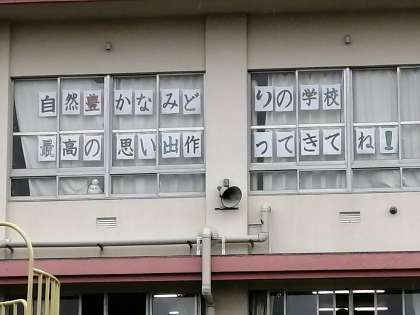 自然豊かなみどりの学校
最高の思い出作ってきてね!